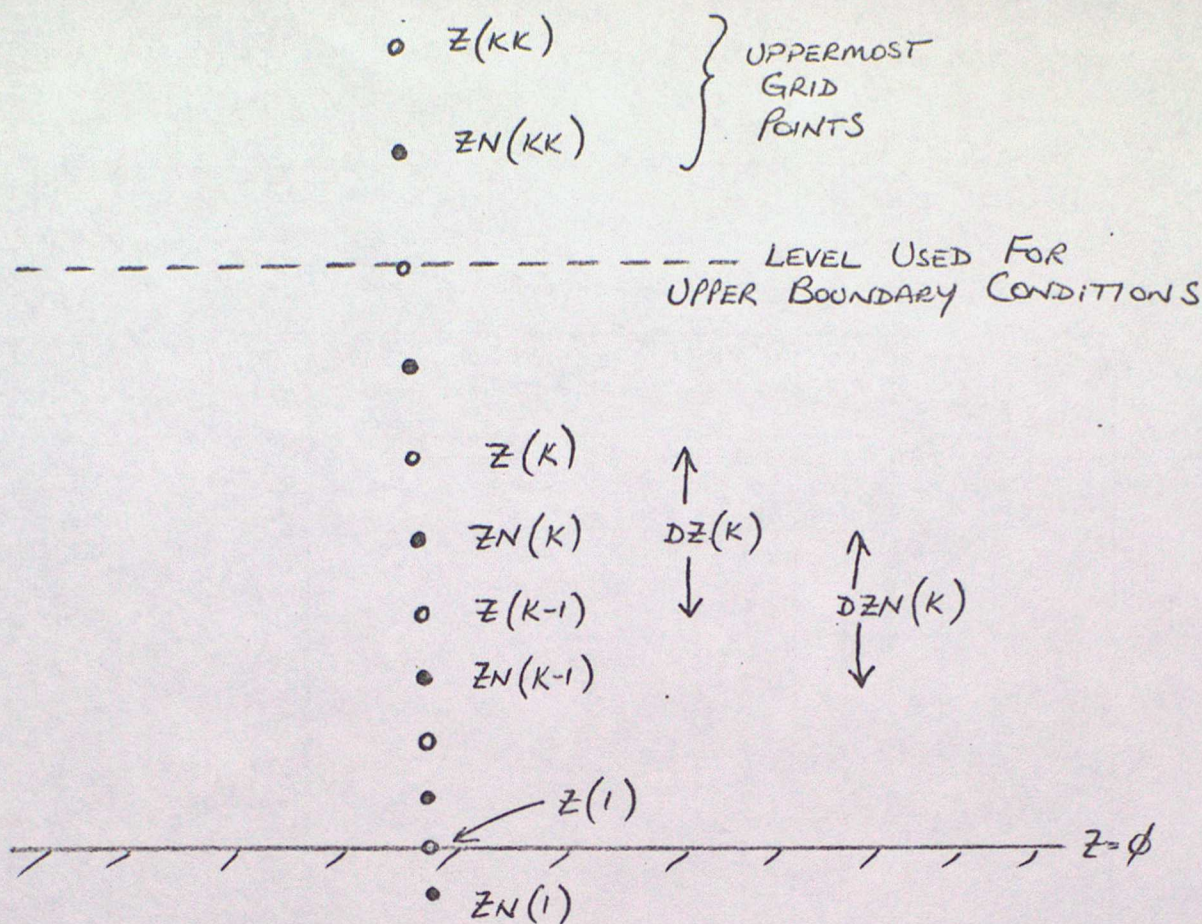 Z(KK)
UPPERMOST
GRID
POINTS
ZN(KK)
LEVEL USED FOR
UPPER BOUNDARY CONDITIONS
Z(K)
ZN(K)
DZ(K)
Z(K-1)
DZN(K)
ZN(K-1)
Z(1)
Z=ϕ
ZN(1)